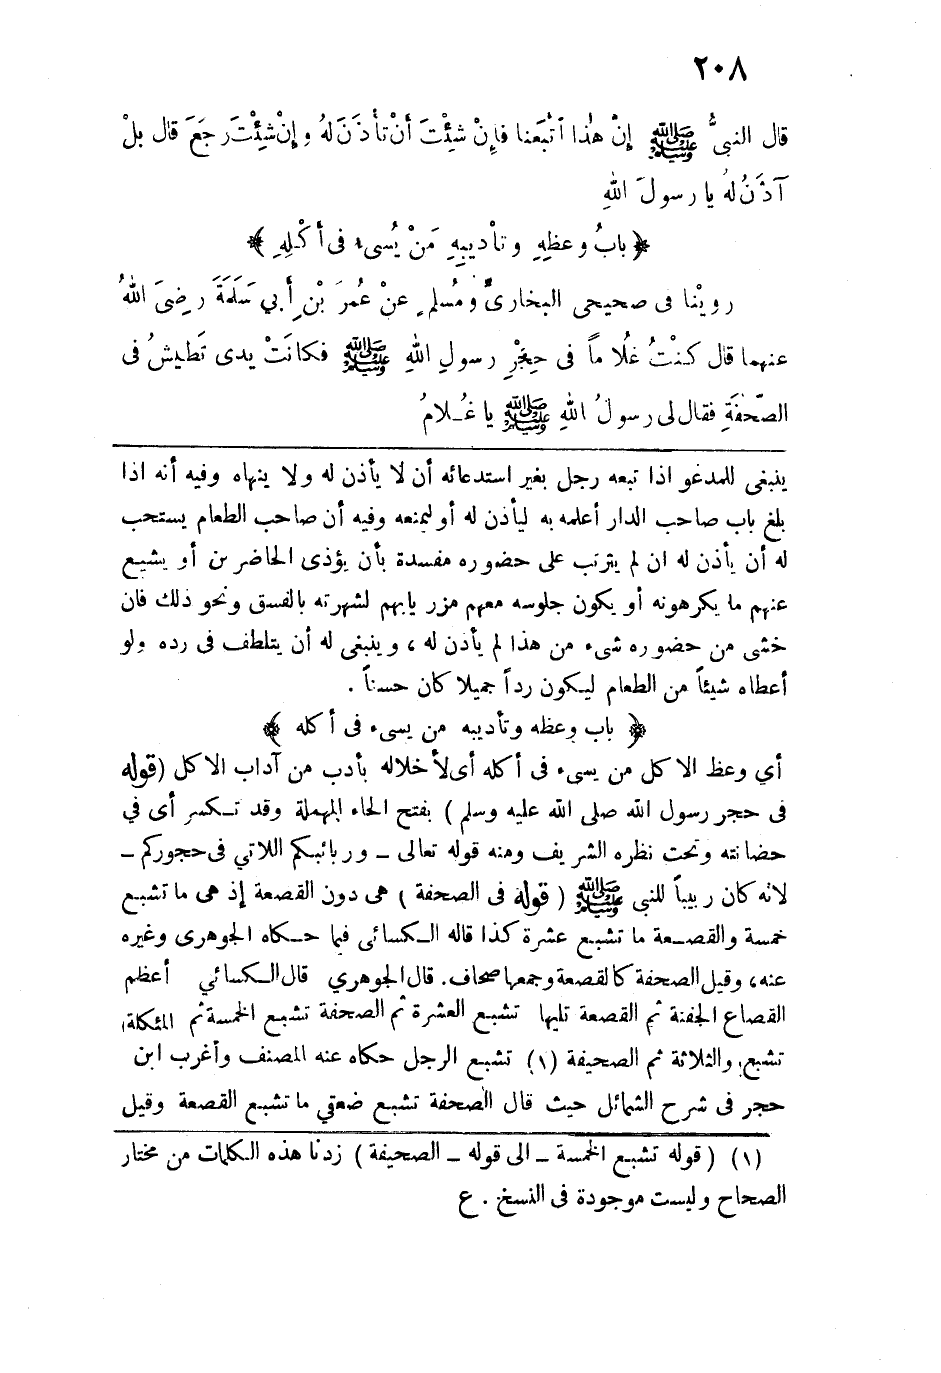 ٢٠٨
قال النبىُّ ﷺ إِنْ هٰذا اتَّبَعَنا فإِنْ شِئْتَ أَنْ تأْذَنَ لهُ وإِنْ شِئْتَ رجَعَ قال بلْ
آذَنُ لهُ يا رسولَ اللهِ
﴿ بابُ وعظِهِ وتأْديبِهِ مَنْ يُسىءُ فى أَكْلِهِ ﴾
روينا فى صحيحى البخارىِّ ومُسلمٍ عنْ عُمرَ بْنِ أَبي سَلَمَةَ رضِىَ اللهُ
عنهما قال كنْتُ غُلاماً فى حِجْرِ رسولِ اللهِ ﷺ فكانَتْ يدى تَطيشُ فى
الصَّحْفَةِ فقال لى رسولُ اللهِ ﷺ يا غُـلامُ
ينبغى للمدعو اذا تبعه رجل بغير استدعائه أن لا يأذن له ولا ينهاه وفيه أنه اذا
بلغ باب صاحب الدار أعلمه به ليأذن له أو ليمنعه وفيه أن صاحب الطعام يستحب
له أن يأذن له ان لم يترتب على حضوره مفسدة بأن يؤذى الحاضرين أو يشيع
عنهم ما يكرهونه أو يكون جلوسه معهم مزريا بهم لشهرته بالفسق ونحو ذلك فان
خشى من حضوره شىء من هذا لم يأذن له ، وينبغى له أن يتلطف فى رده ولو
أعطاه شيئاً من الطعام ليكون رداً جميلا كان حسناً .
﴿ باب وعظه وتأديبه من يسىء فى أكله ﴾
أي وعظ الاكل من يسىء فى أكله أى لأخلاله بأدب من آداب الاكل (قوله
فى حجر رسول الله صلى الله عليه وسلم ) بفتح الحاء المهملة وقد تـكسر أى في
حضانته وتحت نظره الشريف ومنه قوله تعالى ـ وربائبكم اللاتي فى حجوركم ـ
لانه كان ربيباً للنبى ﷺ ( قوله فى الصحفة ) هى دون القصعة إذ هى ما تشبع
خمسة والقصـعة ما تشبع عشرة كذا قاله الـكسائى فيما حـكاه الجوهرى وغيره
عنه، وقيل الصحفة كالقصعة وجمعها صحاف. قال الجوهري قال الـكسائي أعظم
القصاع الجفنة ثم القصعة تليها تشبع العشرة ثم الصحفة تشبع الخمسة ثم المئكلة
تشبع والثلاثة ثم الصحيفة (١) تشبع الرجل حكاه عنه المصنف وأغرب ابن
حجر فى شرح الشمائل حيث قال الصحفة تشبع ضعفي ما تشبع القصعة وقيل
(١) ( قوله تشبع الخمسة ـ الى قوله ـ الصحيفة ) زدنا هذه الـكلمات من مختار
الصحاح وليست موجودة فى النسخ . ع